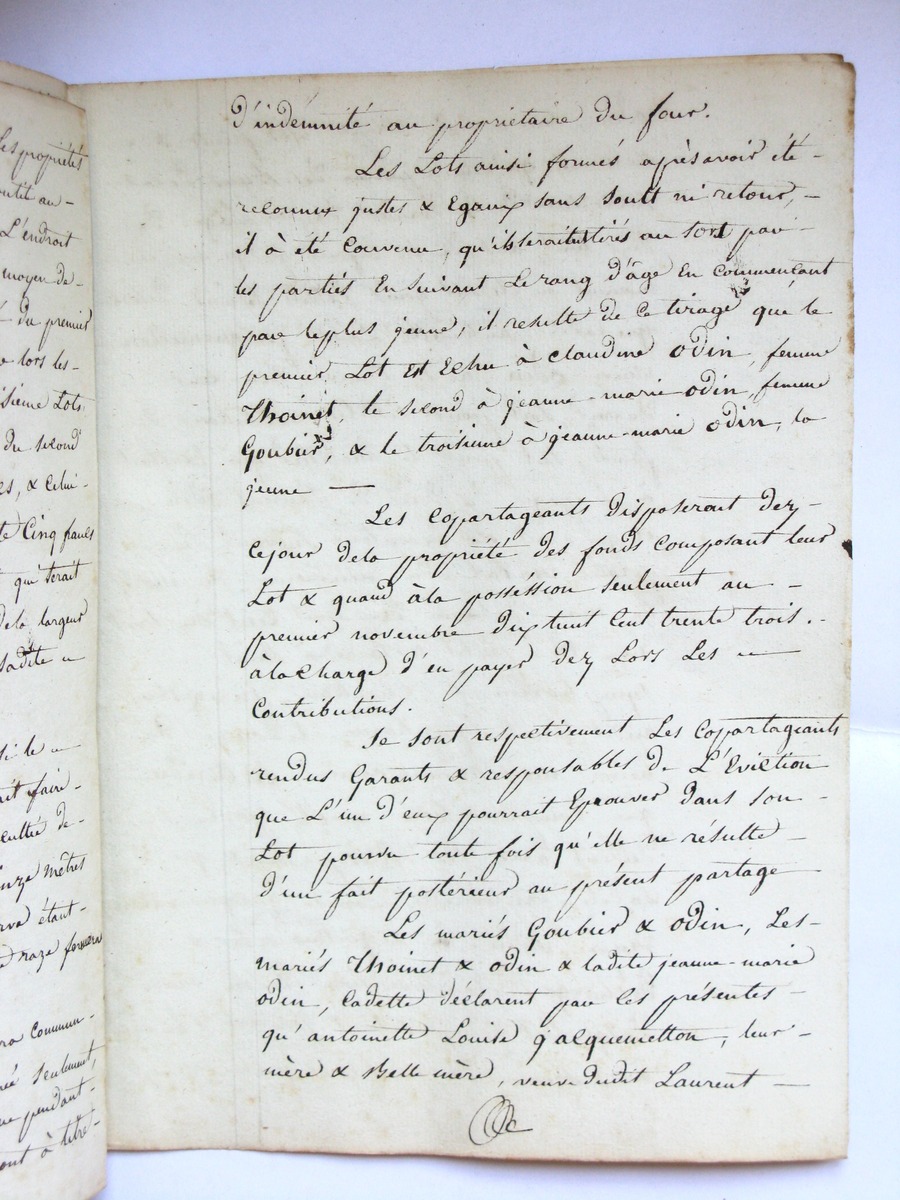 les propriétés
L'endroit
moyen de-
du premier
lors les-
Lots
du second
& celui-
Cinq francs
qui serait
dela largeur
ladite
si le
faire-
de-
mètres
étant-
raze formera
commun-
seulement,
pendant-
à titre-
d'indémnité au propriétaire du four.
Les Lots ainsi formés après avoir été-
reconnux justes & Egaux sans soult ni retour,-
il à été Convenu, qu'ils seraient tirés au sort par-
les partiés En suivant Le rang d'âge En commençant
par le plus jeune, il resulte de Ce tirage que le
premier Lot Est Echu à Claudine Odin, femme
Thoinet, le second à jeanne-marie Odin, femme
Goubier, & le troisieme à jeanne-marie Odin, la
jeune —
Les Copartageants disposeront dez-
Cejour dela propriété des fonds Composant leur
Lot & quand àla posséssion seulement au -
premier novembre dix huit Cent trente trois.-
àla Charge d'en payer dez Lors Les —
Contributions.
Se sont respectivement Les Copartageants
rendus Garants & responsables de L'Eviction
que L'un d'eux pourrait Eprouver dans son-
Lot pourvu toute fois qu'elle ne résulte-
d'un fait postérieur au présent partage
Les mariés Goubier & Odin, Les-
mariés Thoinet & Odin & ladite jeanne-marie
Odin, Cadette déclarent par les présentes-
qu'antoinette Louise jalquemetton, leur-
mère & Belle mère, veuve dudit Laurent —